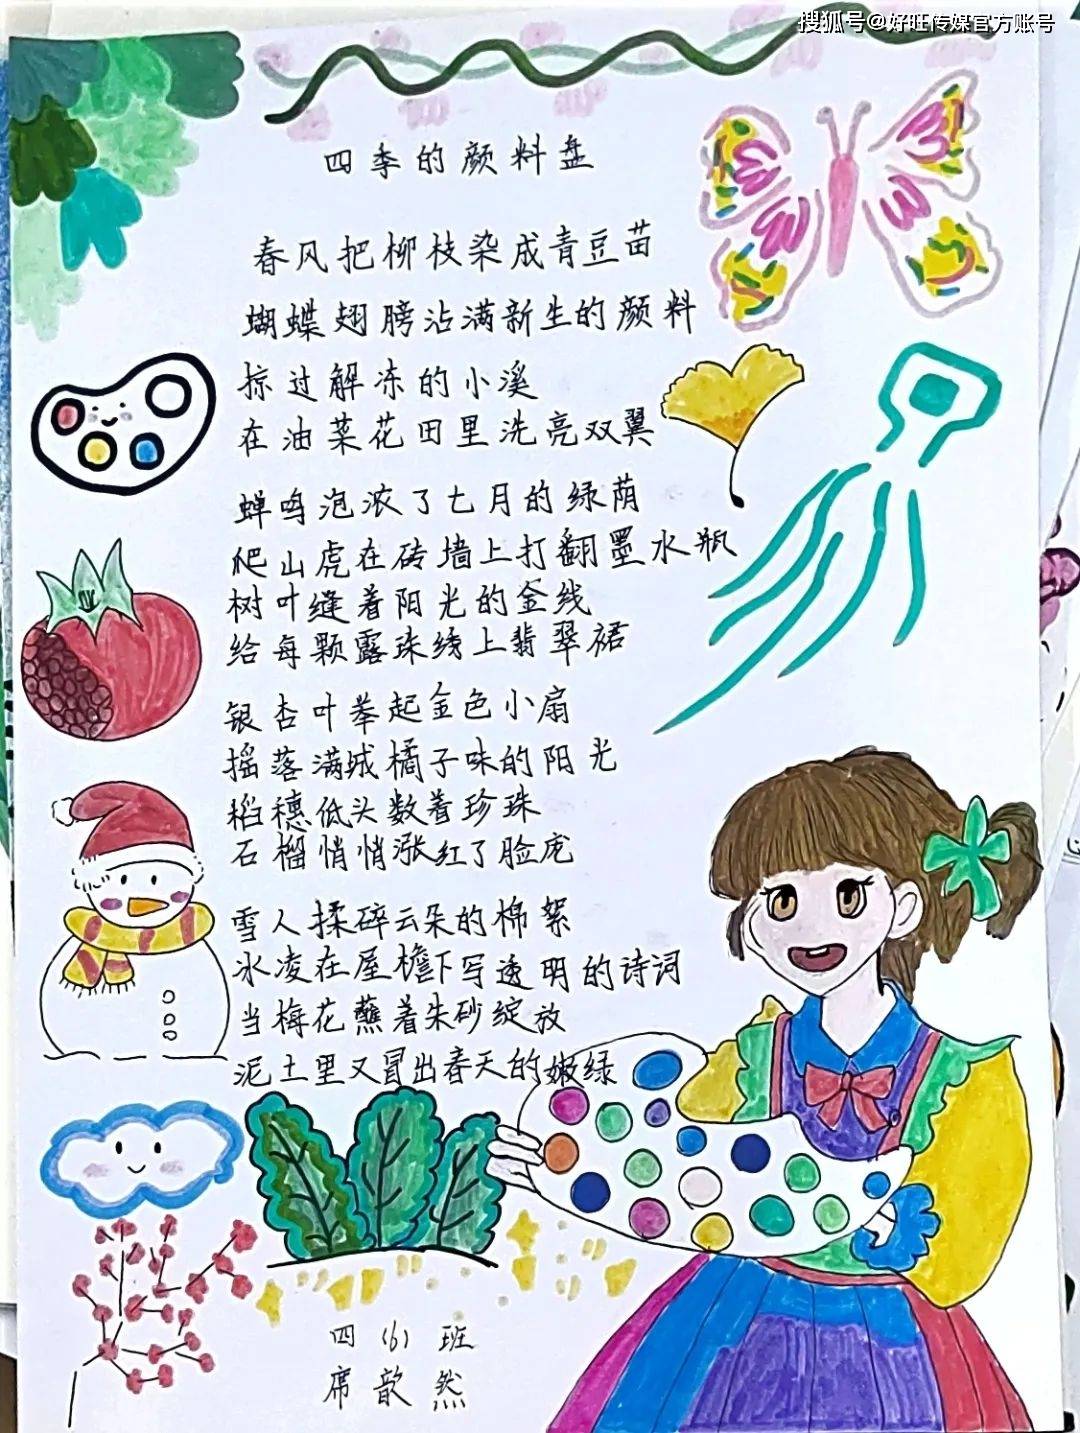 搜狐号@好旺传媒官方账号
四季的颜料盘
春风把柳枝染成青豆苗
蝴蝶翅膀沾满新生的颜料
掠过解冻的小溪
在油菜花田里洗亮双翼
蝉鸣泡浓了七月的绿荫
爬山虎在砖墙上打翻墨水瓶
树叶缝着阳光的金线
给每颗露珠绣上翡翠裙
银杏叶举起金色小扇
摇落满城橘子味的阳光
稻穗低头数着珍珠
石榴悄悄涨红了脸庞
雪人揉碎云朵的棉絮
冰凌在屋檐下写透明的诗词
当梅花蘸着朱砂绽放
泥土里又冒出春天的嫩绿
四(6)班
席歆然